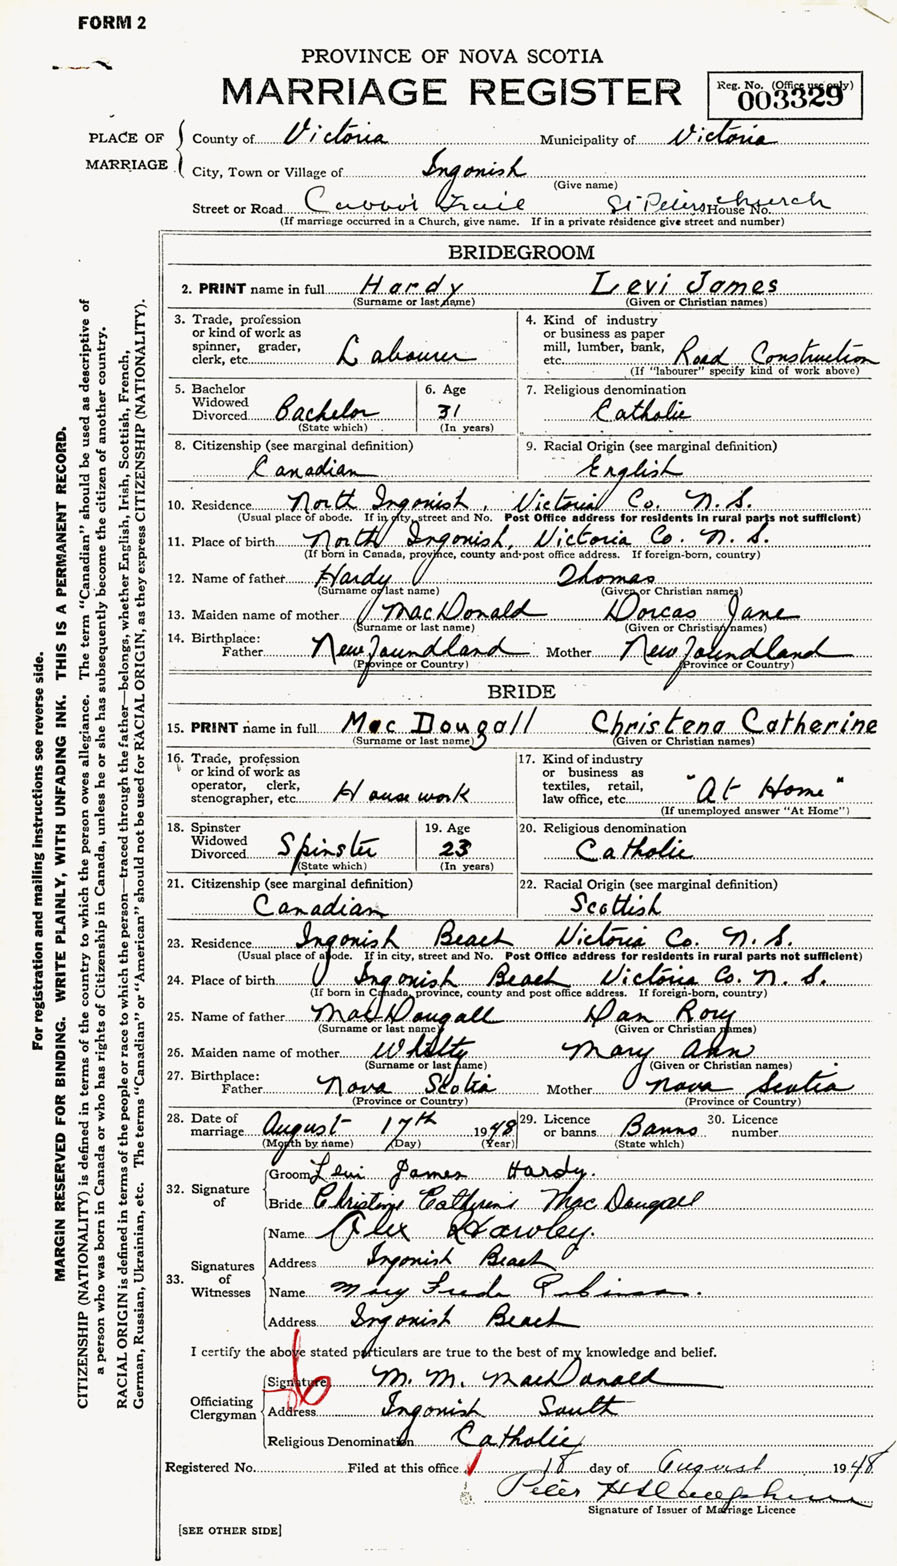 FORM 2
PROVINCE OF NOVA SCOTIA
MARRIAGE REGISTER
Reg. No. (Office use only)
003329
PLACE OF MARRIAGE
County of Victoria Municipality of Victoria
City, Town or Village of Ingonish
(Give name)
Street or Road Cabbot Trail St Peters Church House No.
(If marriage occurred in a Church, give name. If in a private résidence give street and number)
BRIDEGROOM
2. PRINT name in full Hardy Levi James
(Surname or last name) (Given or Christian names)
3. Trade, profession or kind of work as spinner, grader, clerk, etc. Labourer
4. Kind of industry or business as paper mill, lumber, bank, etc. Road Construction
(If "labourer" specify kind of work above)
5. Bachelor Widowed Divorced Bachelor
(State which)
6. Age 31
(In years)
7. Religious denomination
Catholic
8. Citizenship (see marginal definition)
Canadian
9. Racial Origin (see marginal definition)
English
10. Residence North Ingonish, Victoria Co. N.S.
(Usual place of abode. If in city, street and No. Post Office address for residents in rural parts not sufficient)
11. Place of birth North Ingonish, Victoria Co. N.S.
(If born in Canada, province, county and post office address. If foreign-born, country)
12. Name of father Hardy Thomas
(Surname or last name) (Given or Christian names)
13. Maiden name of mother MacDonald Dorcas Jane
(Surname or last name) (Given or Christian names)
14. Birthplace:
Father Newfoundland Mother Newfoundland
(Province or Country) (Province or Country)
BRIDE
15. PRINT name in full Mac Dougall Christena Catherine
(Surname or last name) (Given or Christian names)
16. Trade, profession or kind of work as operator, clerk, stenographer, etc. Housework
17. Kind of industry or business as textiles, retail, law office, etc. "At Home"
(If unemployed answer "At Home")
18. Spinster Widowed Divorced Spinster
(State which)
19. Age 23
(In years)
20. Religious denomination
Catholic
21. Citizenship (see marginal definition)
Canadian
22. Racial Origin (see marginal definition)
Scottish
23. Residence Ingonish Beach Victoria Co. N.S.
(Usual place of abode. If in city, street and No. Post Office address for residents in rural parts not sufficient)
24. Place of birth Ingonish Beach Victoria Co. N.S.
(If born in Canada, province, county and post office address. If foreign-born, country)
25. Name of father MacDougall Dan Rory
(Surname or last name) (Given or Christian names)
26. Maiden name of mother Whitty Mary Ann
(Surname or last name) (Given or Christian names)
27. Birthplace:
Father Nova Scotia Mother Nova Scotia
(Province or Country) (Province or Country)
28. Date of marriage August 17th 1948
(Month by name) (Day) (Year)
29. Licence or banns Banns
(State which)
30. Licence number
32. Signature of
Groom Levi James Hardy.
Bride Christena Catherine MacDougall
33. Signatures of Witnesses
Name Alex Hawley.
Address Ingonish Beach
Name Mary Freda Robinson.
Address Ingonish Beach
I certify the above stated particulars are true to the best of my knowledge and belief.
Officiating Clergyman
Signature M. M. MacDonald
Address Ingonish South
Religious Denomination Catholic
Registered No. Filed at this office 18 day of August 1948
Peter
Signature of Issuer of Marriage Licence
[SEE OTHER SIDE]
For registration and mailing instructions see reverse side.
MARGIN RESERVED FOR BINDING. WRITE PLAINLY, WITH UNFADING INK. THIS IS A PERMANENT RECORD.
CITIZENSHIP (NATIONALITY) is defined in terms of the country to which the person owes allegiance. The term "Canadian" should be used as descriptive of
a person who was born in Canada or who has rights of Citizenship in Canada, unless he or she has subsequently become the citizen of another country.
RACIAL ORIGIN is defined in terms of the people or race to which the person—traced through the father—belongs, whether English, Irish, Scottish, French,
German, Russian, Ukrainian, etc. The terms "Canadian" or "American" should not be used for RACIAL ORIGIN, as they express CITIZENSHIP (NATIONALITY).